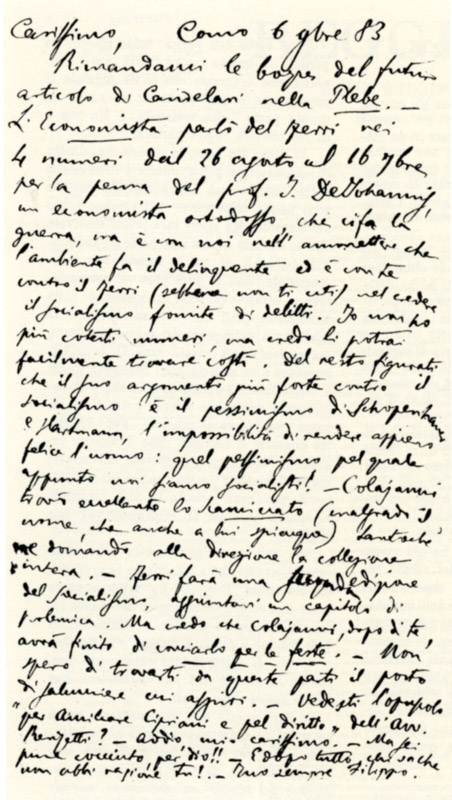 Carissimo, Como 6 9bre 83
Rimandami le bozze del futuro
articolo di Candelari nella Plebe. —
L'Economista parlò del Ferri nei
4 numeri dal 26 agosto al 16 7bre
per la penna del prof. J. De Johannis,
un economista ortodosso, che ci fa la
guerra, ma è con noi nell'ammettere che
l'ambiente fa il delinquente ed è con te
contro il Ferri (sebbene non ti citi) nel credere
il socialismo fomite di delitti. Io non ho
più cotesti numeri, ma credo li potrai
facilmente trovare costì. Del resto figurati
che il suo argomento più forte contro il
socialismo è il pessimismo di Schopenhauer
e Hartmann, l'impossibilità di rendere appieno
felice l'uomo: quel pessimismo pel quale
appunto noi siamo socialisti! — Colajanni
trovò eccellente lo Scamiciato (malgrado il
nome, che anche a lui spiacque) tantochè
ne domandò alla direzione la collezione
intera. — Ferri farà una seconda edizione
del Socialismo, aggiuntovi un capitolo di
polemica. Ma credo che Colajanni, dopo di te,
avrà finito di conciarlo per le feste. — Non
spero di trovarti da queste parti il posto
di salumiere cui aspiri. — Vedesti l'opuscolo
"per Amilcare Cipriani e pel diritto" dell'Avv.
? — Addio mio carissimo. — Ma sei
pure cocciuto, per dio!! — E dopo tutto, chi sa che
non abbi ragione tu! — Tuo sempre Filippo.